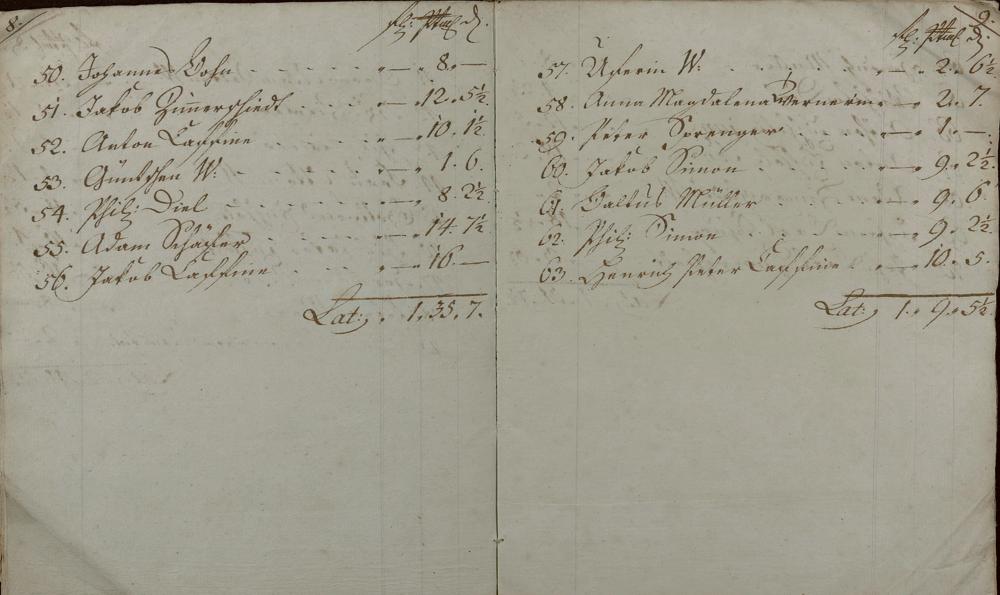 8.
fl: Stbr d.
50. Johannes Bohn . . . . „ — „ 8. —
51. Jakob Zimerschiedt . . . „ — „ 12. 5½.
52. Anton Caffine . . . . „ — „ 10. 1½
53. Güntchen W: . . . . „ — „ 1. 6.
54. Phil: Diel . . . . „ — „ 8. 2½
55. Adam Schäfer . . . . „ — „ 14. 7½
56. Jakob Caffine . . . . „ — „ 16. —
Lat: „ 1. 35. 7.
9.
fl. d.
57. W. . . . . „ — „ 2. 6½
58. Anna Magdalena Wernerin „ — „ 2. 7.
59. Peter Sprenger . . . „ — „ 1. —.
60. Jakob Simon . . . . „ — „ 9. 2½
61. Müller . . . . „ — „ 9. 6.
62. Phil: Simon . . . . „ — „ 9. 2½
63. Henrich Peter Caffine „ — „ 10. 5.
Lat: „ 1. 9. 5½